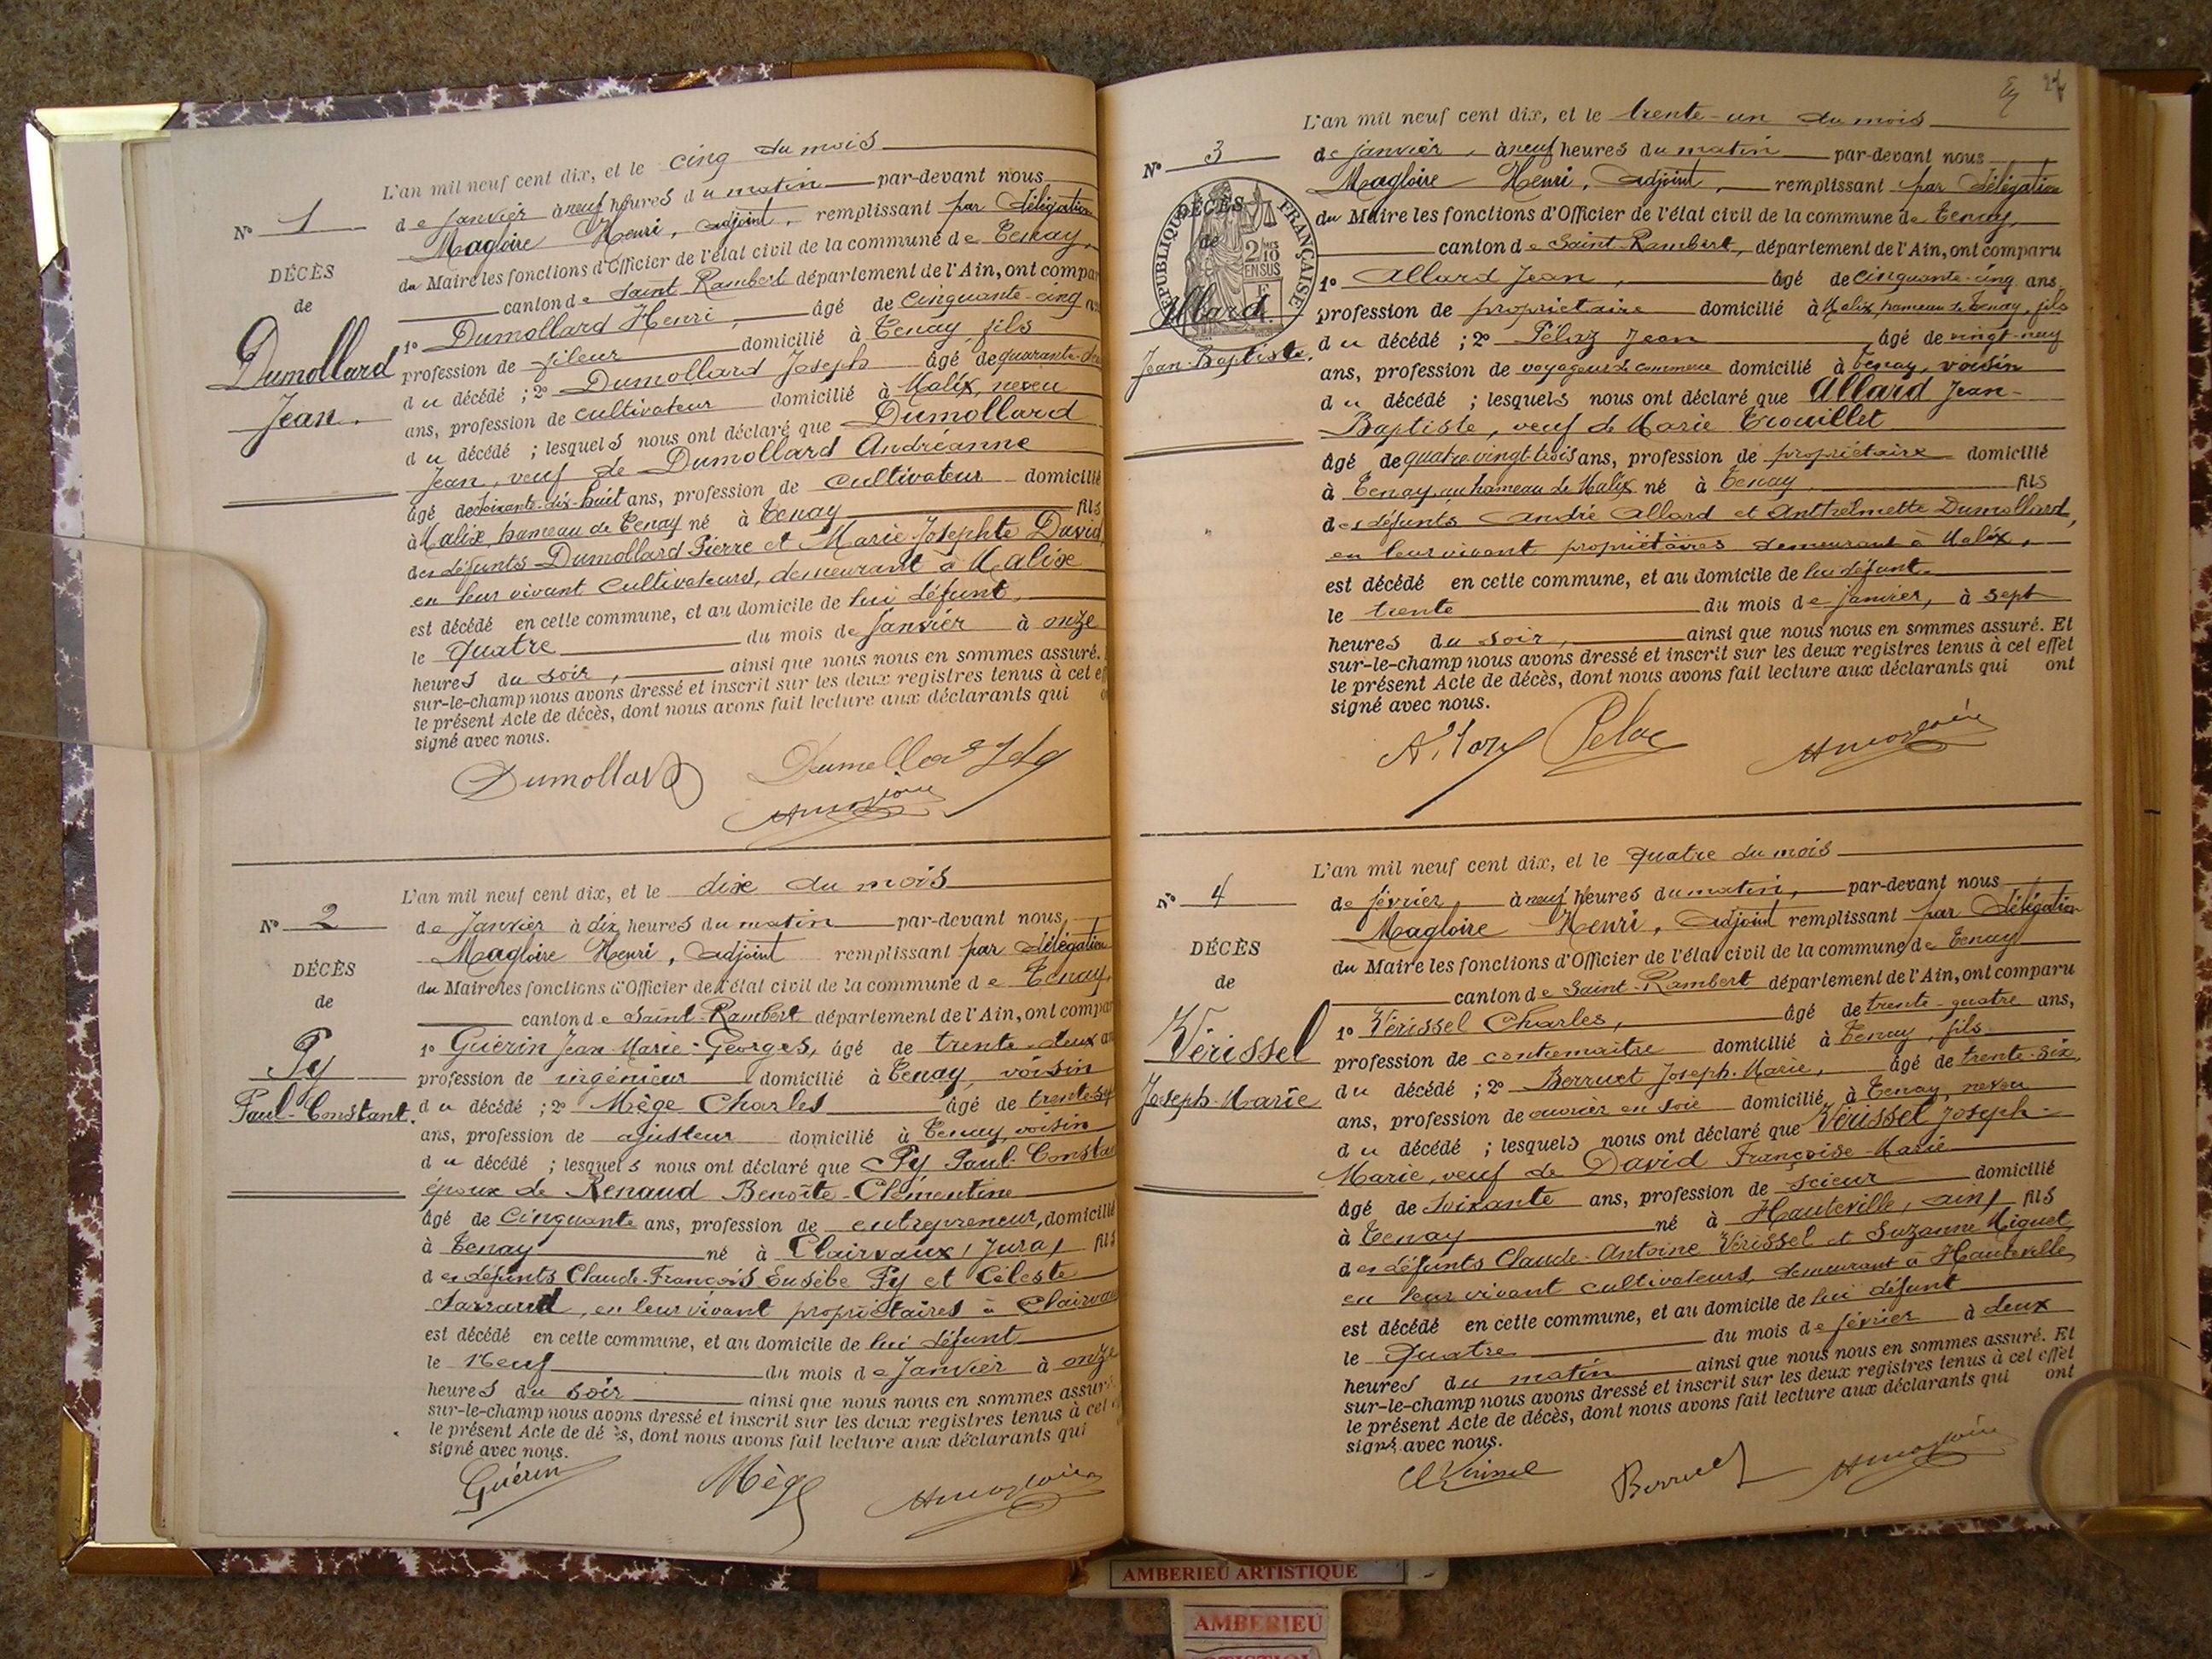 L'an mil neuf cent dix, et le cinq du mois
N° 1
de janvier à neuf heures du matin par-devant nous
Magloire Henri, adjoint, remplissant par délégation
du Maire les fonctions d'Officier de l'état civil de la commune de Tenay,
canton de Saint Rambert département de l'Ain, ont compar
DÉCÈS
de
Dumollard
Jean.
1° Dumollard Henri, âgé de cinquante-cinq
profession de fileur domicilié à Tenay, fils
du décédé ; 2° Dumollard Joseph âgé de quarante-
ans, profession de cultivateur domicilié à Malix, neveu
du décédé ; lesquels nous ont déclaré que Dumollard
Jean, veuf de Dumollard Andréanne
âgé de soixante-dix-huit ans, profession de cultivateur domicilié
à Malix, hameau de Tenay né à Tenay fils
des défunts Dumollard Pierre et Marie-Josephte David,
en leur vivant cultivateurs, demeurant à Malix
est décédé en cette commune, et au domicile de lui défunt,
le quatre du mois de janvier à onze
heures du soir, ainsi que nous nous en sommes assuré.
sur-le-champ nous avons dressé et inscrit sur les deux registres tenus à cet
le présent Acte de décès, dont nous avons fait lecture aux déclarants qui
signé avec nous.
Dumollard
L'an mil neuf cent dix, et le dix du mois
N° 2
de Janvier à dix heures du matin par-devant nous,
Magloire Henri, adjoint remplissant par délégation
du Maire les fonctions d'Officier de l'état civil de la commune de Tenay,
canton de Saint-Rambert département de l'Ain, ont compar
DÉCÈS
de
Py
Paul-Constant.
1° Guérin Jean-Marie-Georges, âgé de trente-deux
profession de ingénieur domicilié à Tenay, voisin
du décédé ; 2° Mège Charles âgé de trente-
ans, profession de ajusteur domicilié à Tenay, voisin
du décédé ; lesquels nous ont déclaré que Py Paul-Constan
époux de Renaud Benoîte-Clémentine
âgé de cinquante ans, profession de entrepreneur, domicilié
à Tenay né à Clairvaux (Jura) fils
des défunts Claude-François Eusèbe Py et Céleste
en leur vivant propriétaires à Clairvau
est décédé en cette commune, et au domicile de lui défunt
le neuf du mois de Janvier à onze
heures du soir ainsi que nous nous en sommes assuré
sur-le-champ nous avons dressé et inscrit sur les deux registres tenus à cet
le présent Acte de dé ès, dont nous avons fait lecture aux déclarants qui
signé avec nous.
Guérin Mège
L'an mil neuf cent dix, et le trente-un du mois
N° 3
de janvier, à neuf heures du matin par-devant nous
Magloire Henri, adjoint, remplissant par délégation
du Maire les fonctions d'Officier de l'état civil de la commune de Tenay,
canton de Saint-Rambert, département de l'Ain, ont comparu
RÉPUBLIQUE FRANÇAISE
2/10 EN SUS
DÉCÈS
de
Allard
Jean-Baptiste.
1° Allard Jean, âgé de cinquante-cinq ans,
profession de propriétaire domicilié à Malix, hameau de Tenay, fils
du décédé ; 2° Pélaz Jean âgé de vingt-neuf
ans, profession de voyageur de commerce domicilié à Tenay, voisin
du décédé ; lesquels nous ont déclaré que Allard Jean-
Baptiste, veuf de Marie Trouillet
âgé de quatre-vingt-trois ans, profession de propriétaire domicilié
à Tenay, au hameau de Malix né à Tenay fils
des défunts André Allard et Anthelmette Dumollard,
en leur vivant propriétaires demeurant à Malix,
est décédé en cette commune, et au domicile de lui défunt.
le trente du mois de janvier, à sept
heures du soir, ainsi que nous nous en sommes assuré. Et
sur-le-champ nous avons dressé et inscrit sur les deux registres tenus à cet effet
le présent Acte de décès, dont nous avons fait lecture aux déclarants qui ont
signé avec nous.
L'an mil neuf cent dix, et le quatre du mois
N° 4
de février, à neuf heures du matin, par-devant nous
Magloire Henri, adjoint remplissant par délégation
du Maire les fonctions d'Officier de l'état civil de la commune de Tenay
canton de Saint-Rambert département de l'Ain, ont comparu
DÉCÈS
de
Vérissel
Joseph-Marie
1° Vérissel Charles, âgé de trente-quatre ans,
profession de contremaître domicilié à Tenay, fils
du décédé ; 2° Berruet Joseph-Marie, âgé de trente-six
ans, profession de ouvrier en soie domicilié à Tenay, neveu
du décédé ; lesquels nous ont déclaré que Vérissel Joseph-
Marie, veuf de David Françoise-Marie
âgé de soixante ans, profession de scieur domicilié
à Tenay né à Hauteville, (Ain) fils
des défunts Claude-Antoine Vérissel et Suzanne Miguet
en leur vivant cultivateurs, demeurant à Hauteville
est décédé en cette commune, et au domicile de lui défunt
le quatre du mois de février à deux
heures du matin ainsi que nous nous en sommes assuré. Et
sur-le-champ nous avons dressé et inscrit sur les deux registres tenus à cet effet
le présent Acte de décès, dont nous avons fait lecture aux déclarants qui ont
signé avec nous.
Berruet
AMBERIEU ARTISTIQUE
AMBERIEU